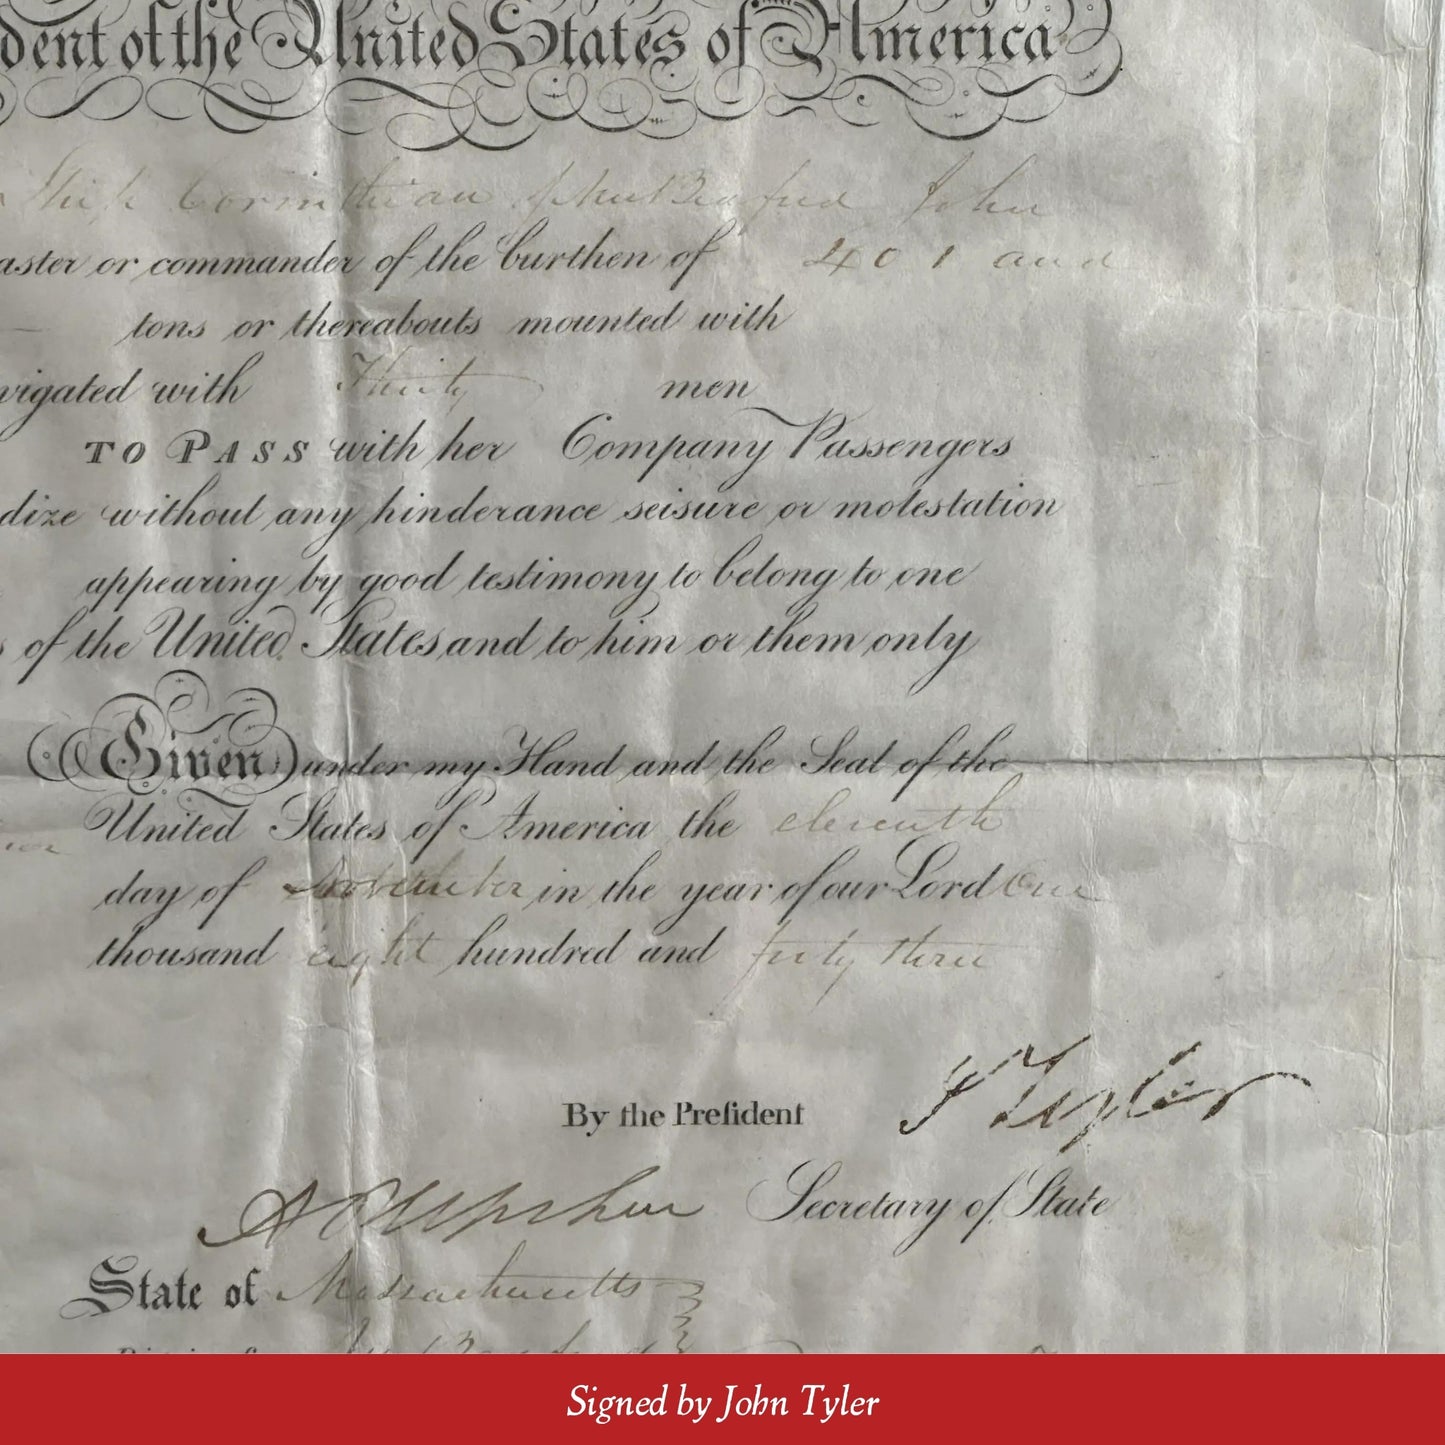 dent of the United States of America
Ship Corinthian of New Bedford John
aster or commander of the burthen of 401 and
tons or thereabouts mounted with
vigated with Thirty men
TO PASS with her Company Passengers
dize without any hinderance seisure or molestation
appearing by good testimony to belong to one
s of the United States and to him or them only
Given under my Hand and the Seal of the
United States of America the eleventh
day of November in the year of our Lord One
thousand eight hundred and forty three
J Tyler
By the Preſident
A P Upshur Secretary of State
State of Massachusetts
Signed by John Tyler